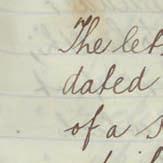 The let
dated
of a s